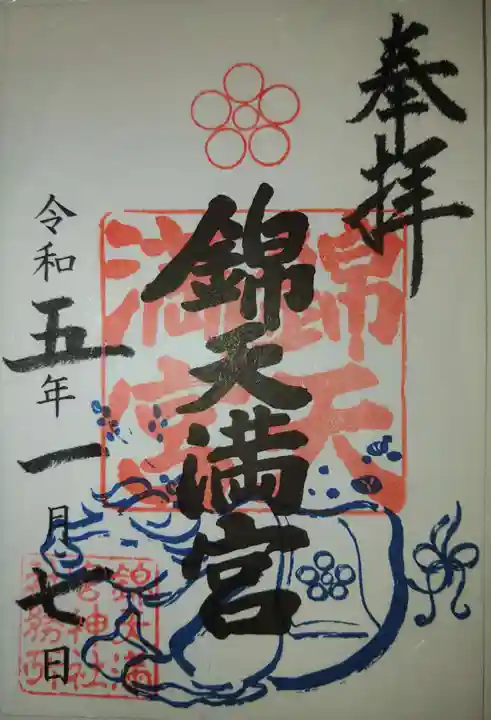 奉拝
錦天満宮
錦天
満宮
令和五年一月七日
錦天満
宮神社
務所